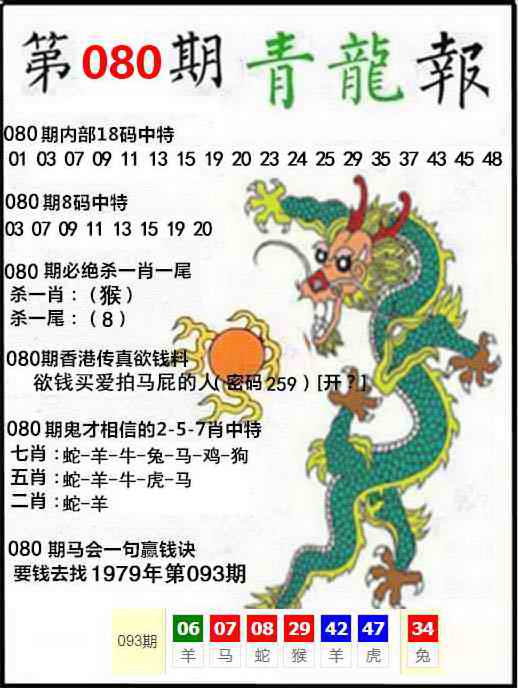 第080期青龍報
080期内部18码中特
01 03 07 09 11 13 15 19 20 23 24 25 29 35 37 43 45 48
080期8码中特
03 07 09 11 13 15 19 20
080 期必绝杀一肖一尾
杀一肖：（猴）
杀一尾：（8）
080期香港传真欲钱料
欲钱买爱拍马屁的人（密码259）[开？]
080期鬼才相信的2-5-7肖中特
七肖：蛇-羊-牛-兔-马-鸡-狗
五肖：蛇-羊-牛-虎-马
二肖：蛇-羊
080 期马会一句赢钱诀
要钱去找1979年第093期
093期 06 07 08 29 42 47 34
羊 马 蛇 猴 羊 虎 兔